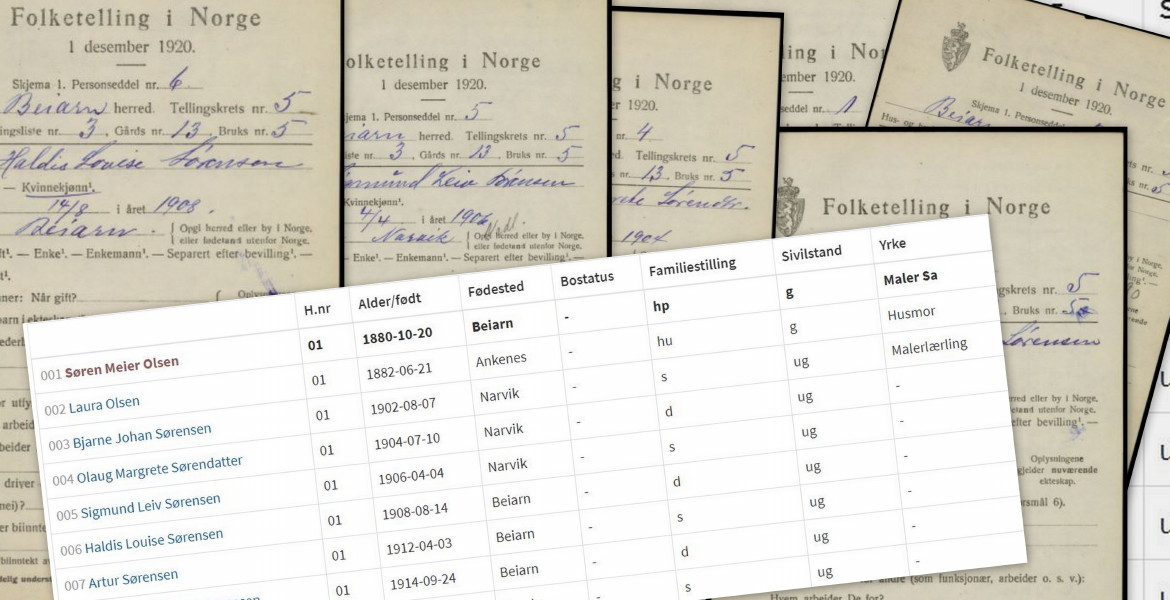 Folketelling i Norge
1 desember 1920.
Skjema 1. Personseddel nr. 6
Beiarn herred. Tellingskrets nr. 5
ingsliste nr. 3, Gårds nr. 13, Bruks nr. 5
Haldis Lovise Sørensen
— Kvinnekjønn¹.
14/8 i året 1908.
Beiarn. { Opgi herred eller by i Norge,
eller fødeland utenfor Norge.
ft¹. — Enke¹. — Enkemann¹. — Separert efter bevilling¹. —
ner: Når gift?
olketelling i Norge
1 desember 1920.
jema 1. Personseddel nr. 5
iarn herred. Tellingskrets nr. 5
ste nr. 3, Gårds nr. 13, Bruks nr. 5
Leiv Sørensen
Kvinnekjønn¹.
4/4 i året 1906.
Narvik { Opgi herred eller by i Norge,
eller fødeland utenfor Norge.
Enke¹. — Enkemann¹. — Separert efter bevilling¹. —
g i Norge
er 1920.
nr. 4
ed. Tellingskrets nr. 5
nr. 13, Bruks nr. 5
1904
lling i Nor
ember 1920.
seddel nr. 1
Folketelling i Norge
1 desember 1920.
Skjema 1. Personseddel
Hus- og
Beiarn
Folketelling i Norge
skrets nr. 5
Bruks nr. 5
Sørensen
rred eller by i Norge,
eland utenfor Norge.
efter bevilling¹. —
Oplysningene
gjelder nuværende
ekteskap.
rsmål 6).
andre (som funksjonær, arbeider o. s. v.):
Hvem arbeider De for?
H.nr Alder/født Fødested Bostatus Familiestilling Sivilstand Yrke
001 Søren Meier Olsen 01 1880-10-20 Beiarn - hp g Maler Sa
002 Laura Olsen 01 1882-06-21 Ankenes - hu g Husmor
003 Bjarne Johan Sørensen 01 1902-08-07 Narvik - s ug Malerlærling
004 Olaug Margrete Sørendatter 01 1904-07-10 Narvik - d ug -
005 Sigmund Leiv Sørensen 01 1906-04-04 Narvik - s ug -
006 Haldis Louise Sørensen 01 1908-08-14 Beiarn - d ug -
007 Artur Sørensen 01 1912-04-03 Beiarn - s ug -
01 1914-09-24 Beiarn - d ug -
s ug -